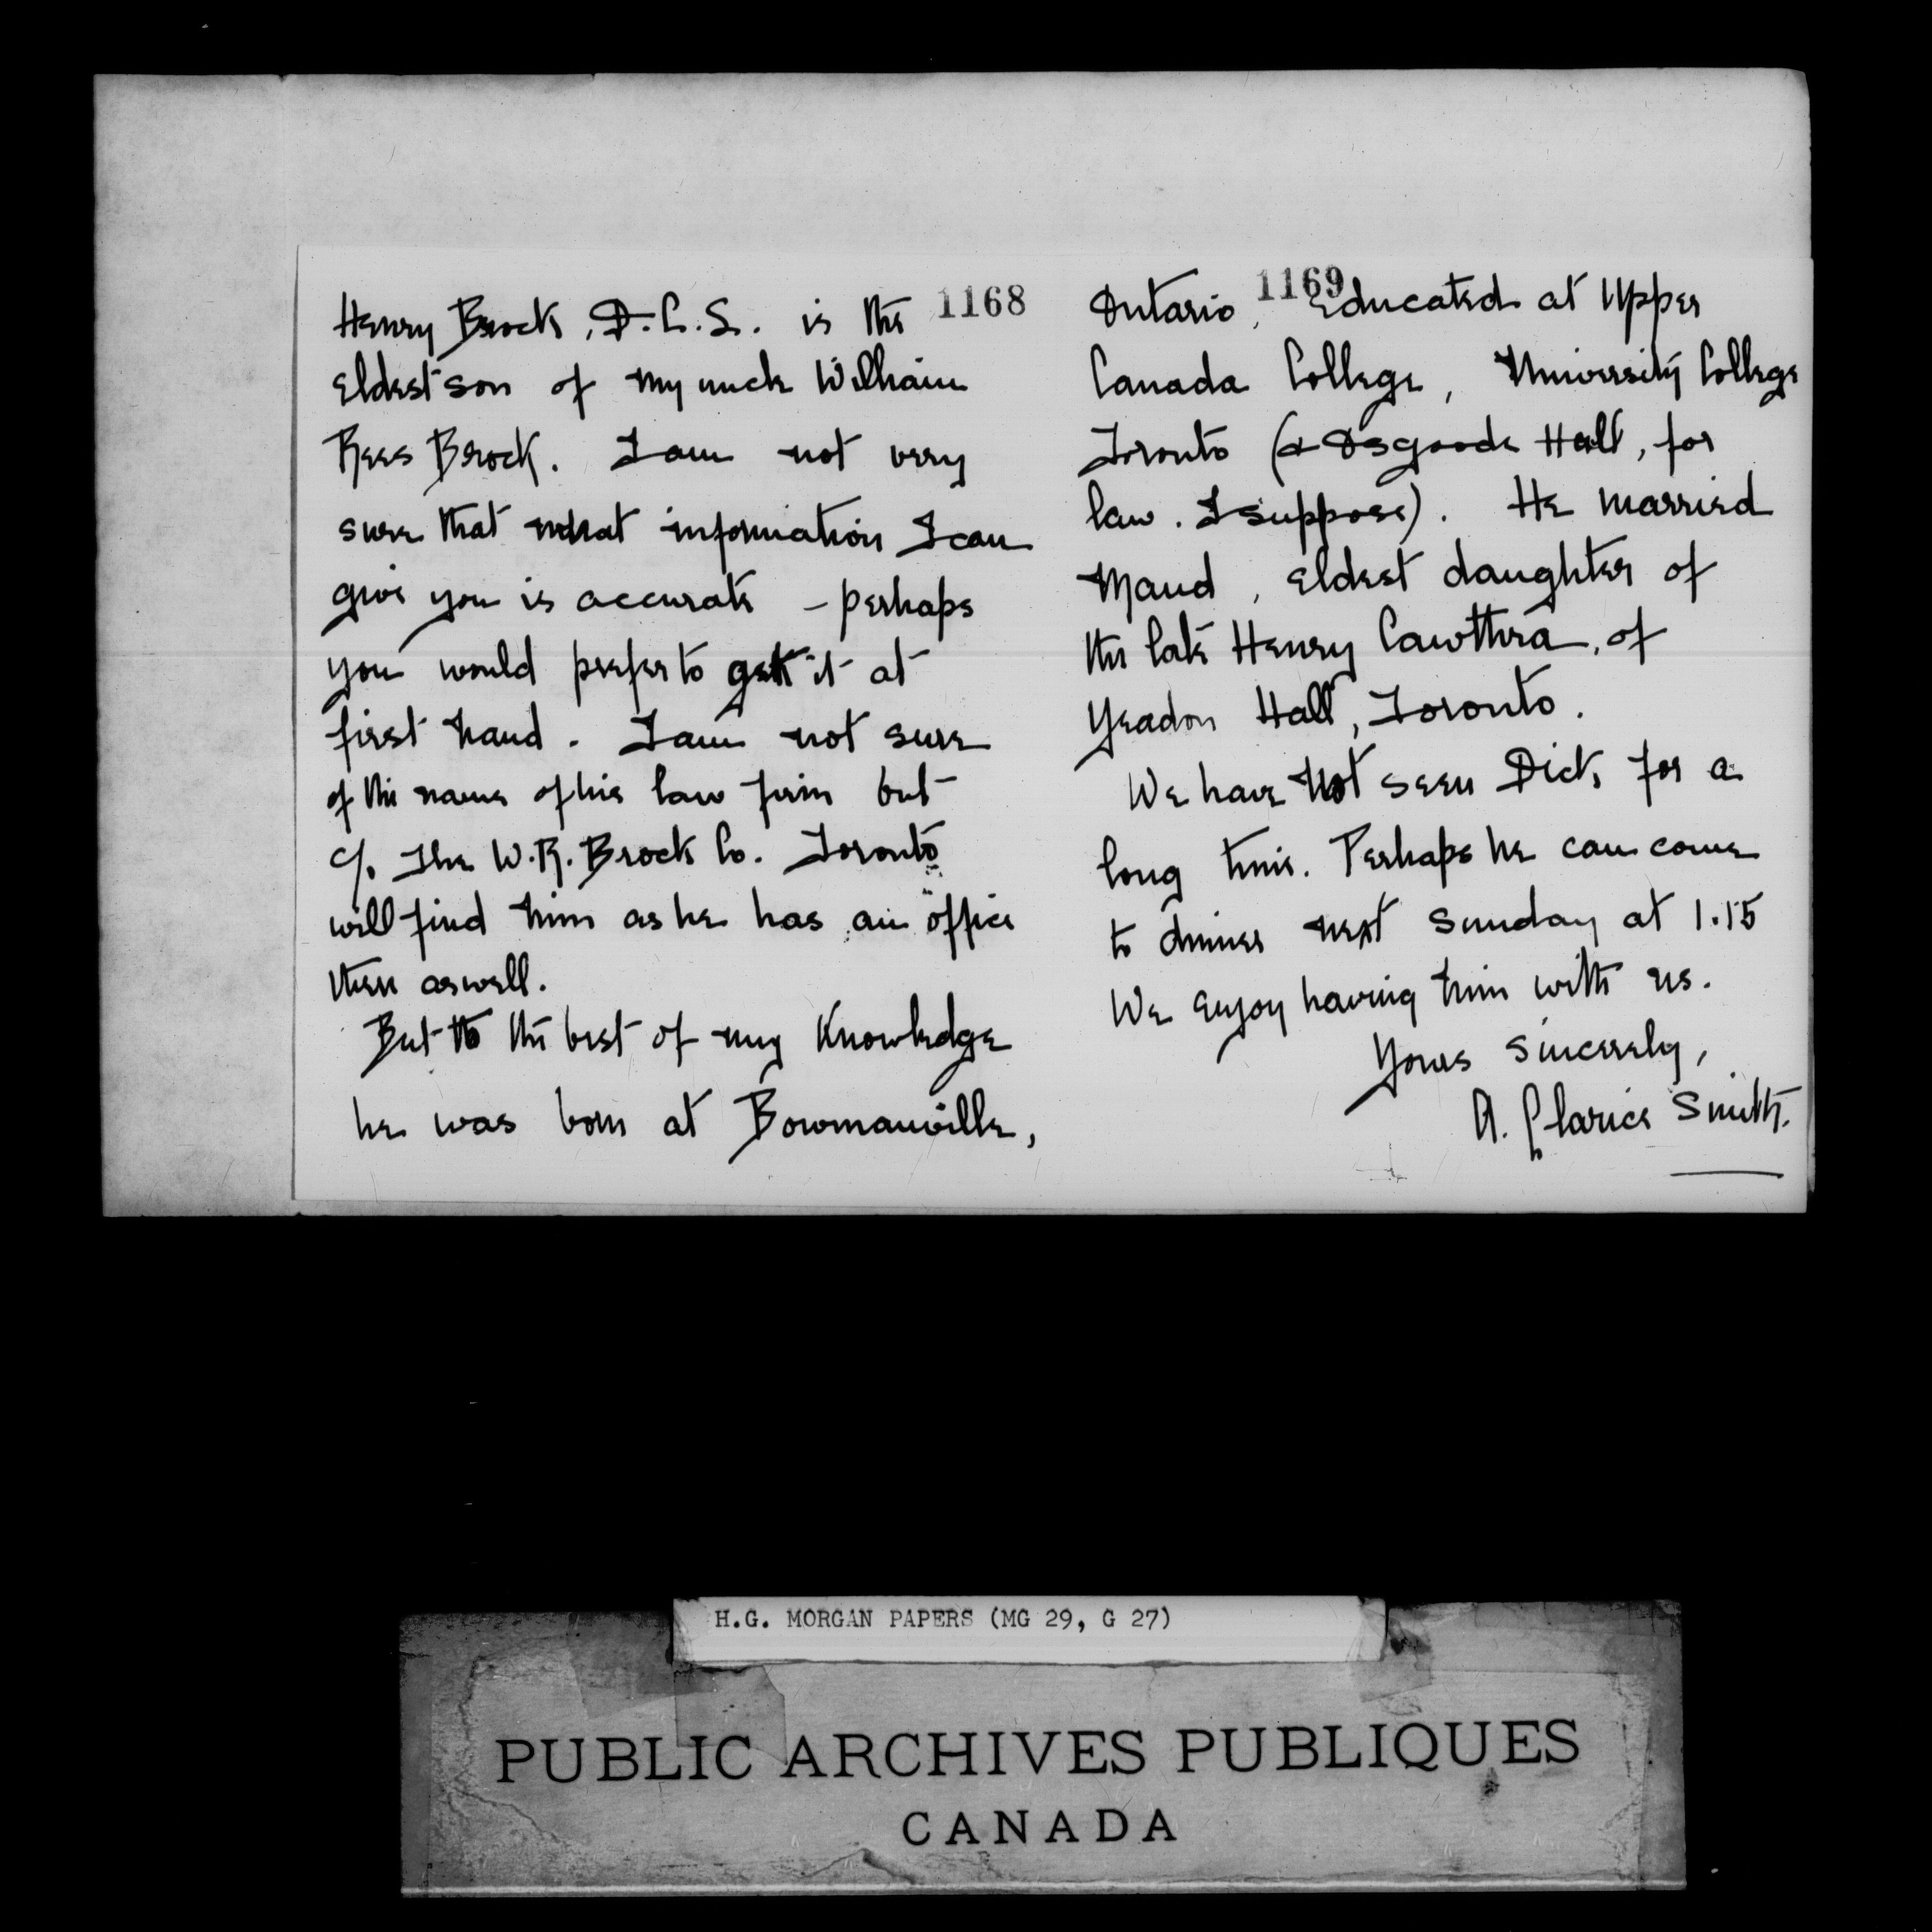 1168
Henry Brock, D.C.L. is the
eldest son of my uncle William
Rees Brock. I am not very
sure that what information I can
give you is accurate - perhaps
you would prefer to get it at
first hand. I am not sure
of the name of his law firm but
c/o The W.R. Brock Co. Toronto
will find him as he has an office
there as well.
But to the best of my knowledge
he was born at Bowmanville,
1169
Ontario, educated at Upper
Canada College, University College
Toronto (& Osgoode Hall, for
law. I suppose). He married
Maud, eldest daughter of
the late Henry Cawthra, of
Yeadon Hall, Toronto.
We have not seen Dick for a
long time. Perhaps he can come
to dinner next Sunday at 1.15
We enjoy having him with us.
Yours sincerely,
A. Clarice Smith.
H.G. MORGAN PAPERS (MG 29, G 27)
PUBLIC ARCHIVES PUBLIQUES
CANADA